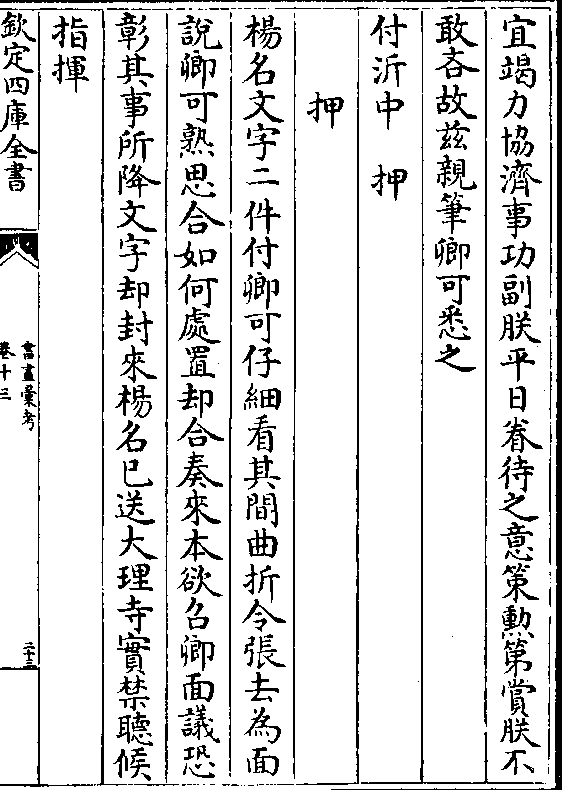 宜竭力協濟事功副朕平日眷待之意策勲第賞朕不
敢吝故兹親筆卿可悉之
付沂中　押
押
楊名文字二件付卿可仔細看其間曲折令張去為面
說卿可熟思合如何處置却合奏來本欲召卿面議恐
彰其事所降文字却封來楊名已送大理寺實禁聽候
指揮
欽定四庫全書
書畫彙考
卷十三
二十三